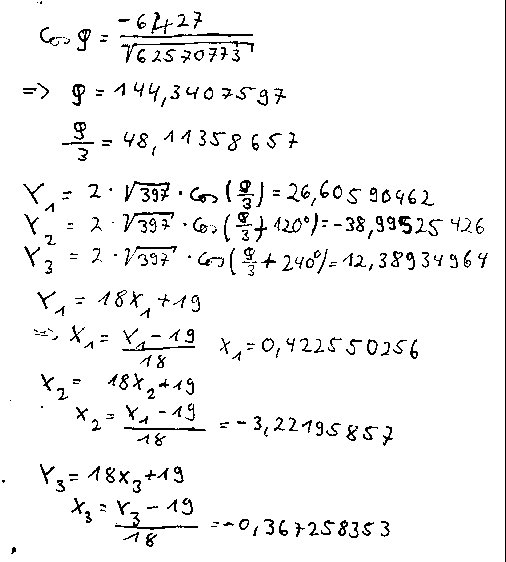 cos φ = -6427 / √62570773
=> φ = 144,3407597
φ/3 = 48,11358657
Y₁ = 2 · √397 · cos(φ/3) = 26,60590462
Y₂ = 2 · √397 · cos(φ/3 + 120°) = -38,99525426
Y₃ = 2 · √397 · cos(φ/3 + 240°) = 12,38934964
Y₁ = 18X₁ + 19
=> X₁ = (Y₁ - 19) / 18 X₁ = 0,422550256
X₂ = 18X₂ + 19
X₂ = (X₁ - 19) / 18 = -3,22195857
Y₃ = 18X₃ + 19
X₃ = (Y₃ - 19) / 18 = -0,367258353